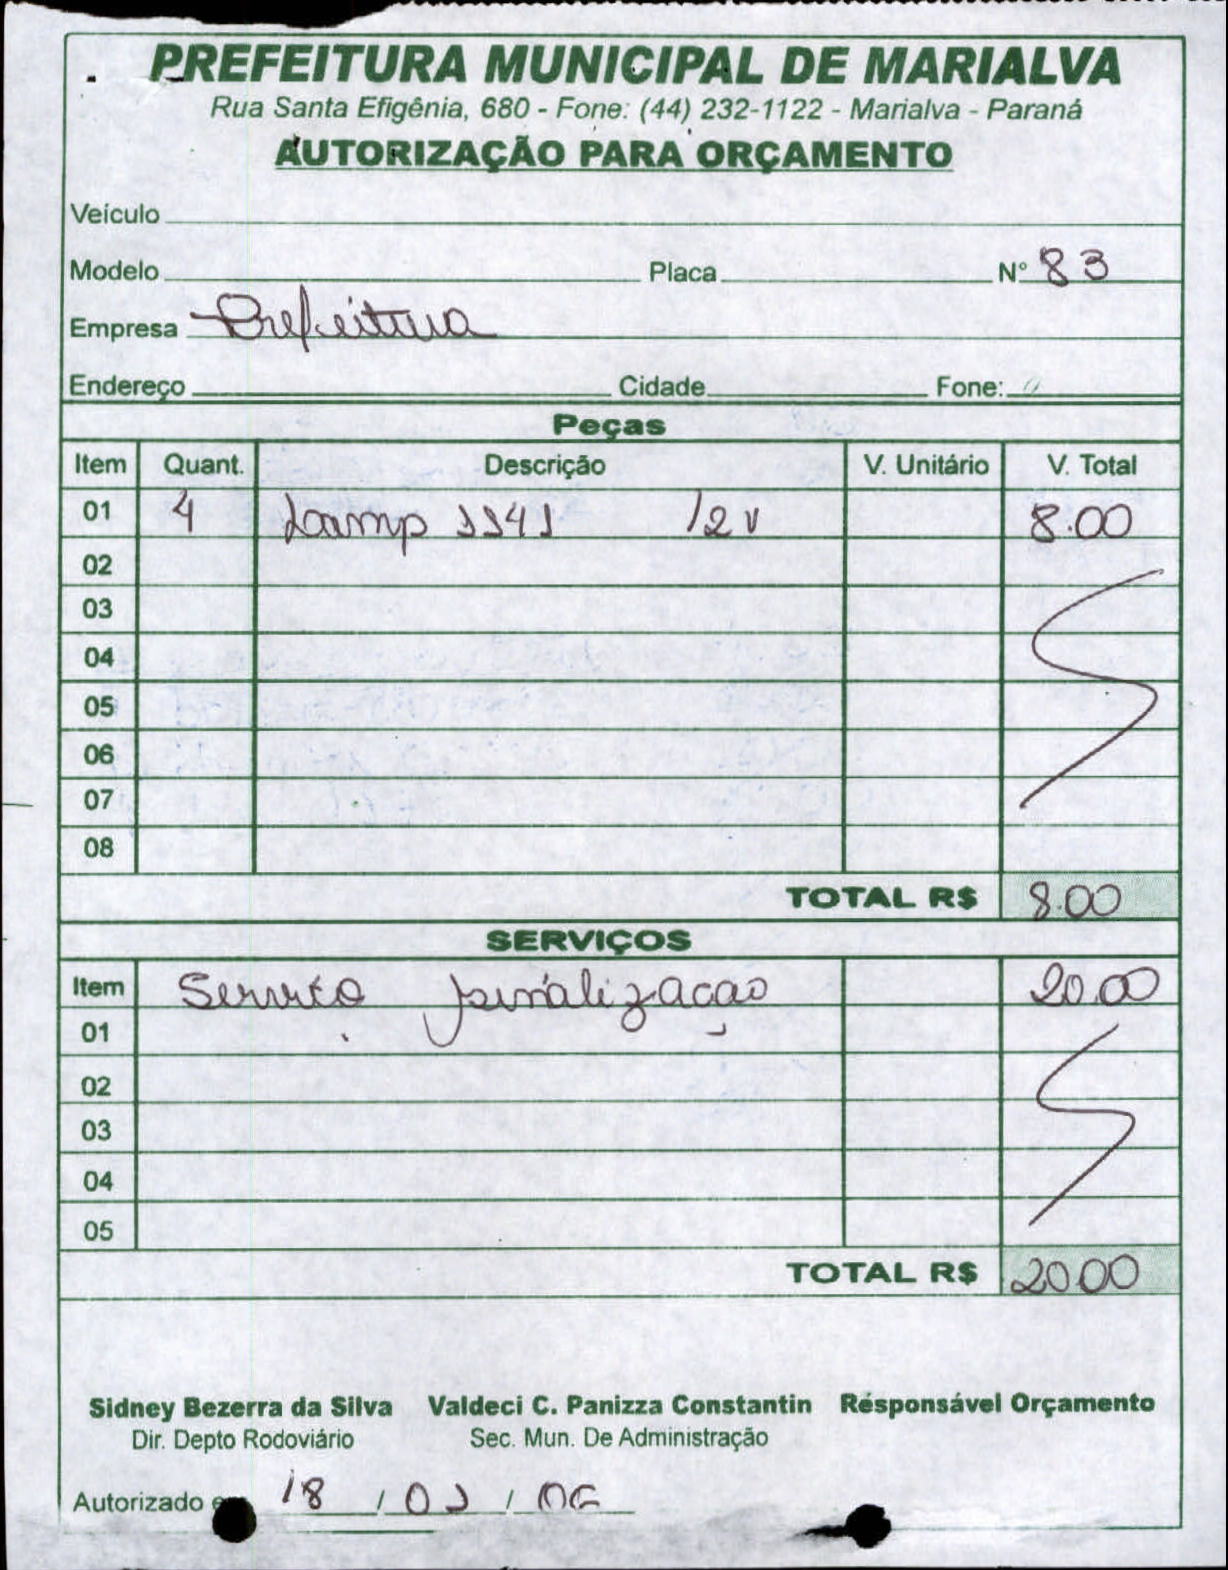 PREFEITURA MUNICIPAL DE MARIALVA
Rua Santa Efigênia, 680 - Fone: (44) 232-1122 - Marialva - Paraná
AUTORIZAÇÃO PARA ORÇAMENTO
Veículo
Modelo Placa N° 83
Empresa Prefeitura
Endereço Cidade Fone:
Peças
Item Quant. Descrição V. Unitário V. Total
01 4 Lamp 1141 12v 8.00
02
03
04
05
06
07
08
TOTAL R$ 8.00
SERVIÇOS
Item Serviço sinalização 20.00
01
02
03
04
05
TOTAL R$ 20.00
Sidney Bezerra da Silva Valdeci C. Panizza Constantin Résponsável Orçamento
Dir. Depto Rodoviário Sec. Mun. De Administração
Autorizado 18 / 01 / 06